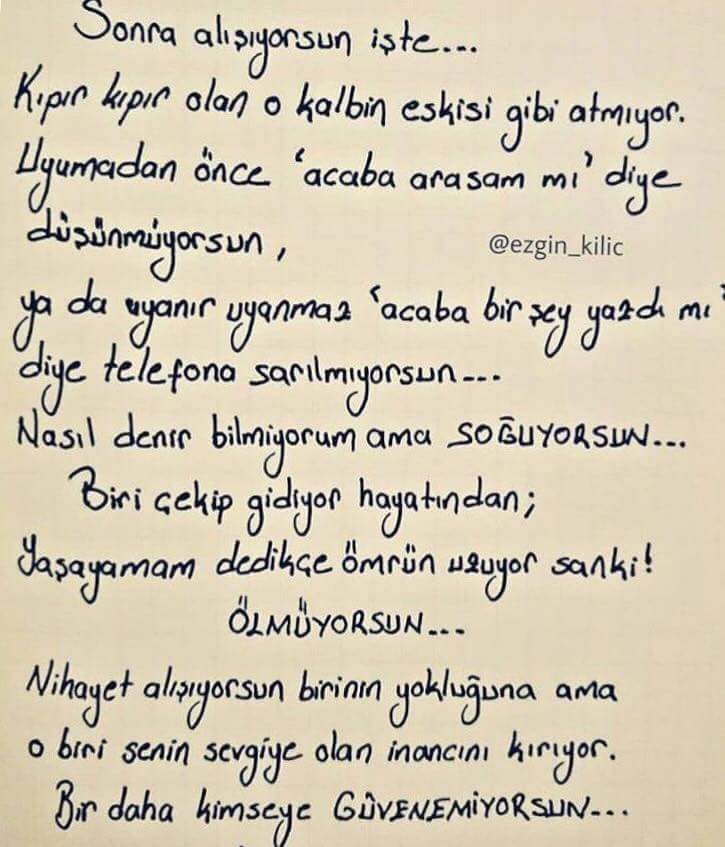 Sonra alışıyorsun işte...
Kıpır kıpır olan o kalbin eskisi gibi atmıyor.
Uyumadan önce 'acaba arasam mı' diye
düşünmüyorsun,
@ezgin_kilic
ya da uyanır uyanmaz 'acaba bir şey yazdı mı'
diye telefona sarılmıyorsun...
Nasıl denir bilmiyorum ama SOĞUYORSUN...
Biri çekip gidiyor hayatından;
Yaşayamam dedikçe ömrün uzuyor sanki!
ÖLMÜYORSUN...
Nihayet alışıyorsun birinin yokluğuna ama
o biri senin sevgiye olan inancını kırıyor.
Bir daha kimseye GÜVENEMİYORSUN...